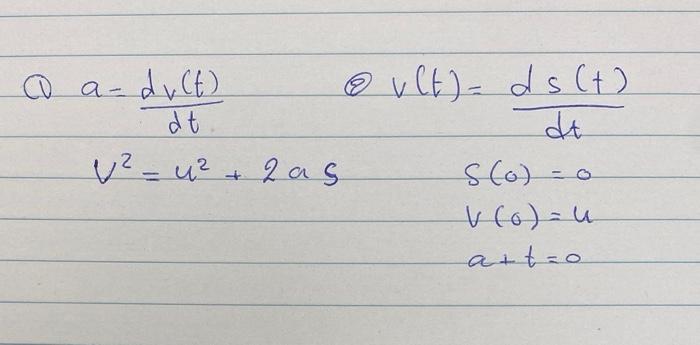 ① a = dv(t)/dt ② v(t) = ds(t)/dt
v² = u² + 2as
s(0) = 0
v(0) = u
a + t = 0